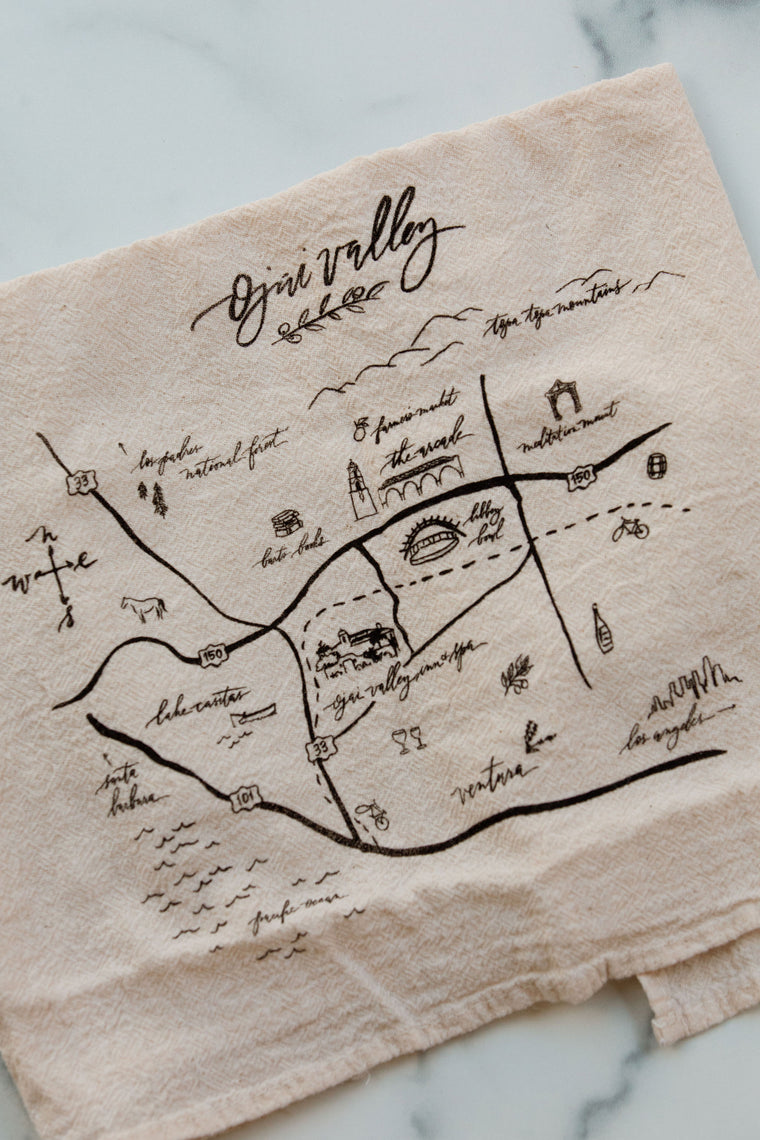 ojai valley
topa topa mountains
farmer's market
the arcade
meditation mount
los padres
national forest
33
150
n
w e
s
barts books
libbey
bowl
150
ojai valley inn & spa
lake casitas
33
santa
barbara
101
ventura
los angeles
pacific ocean